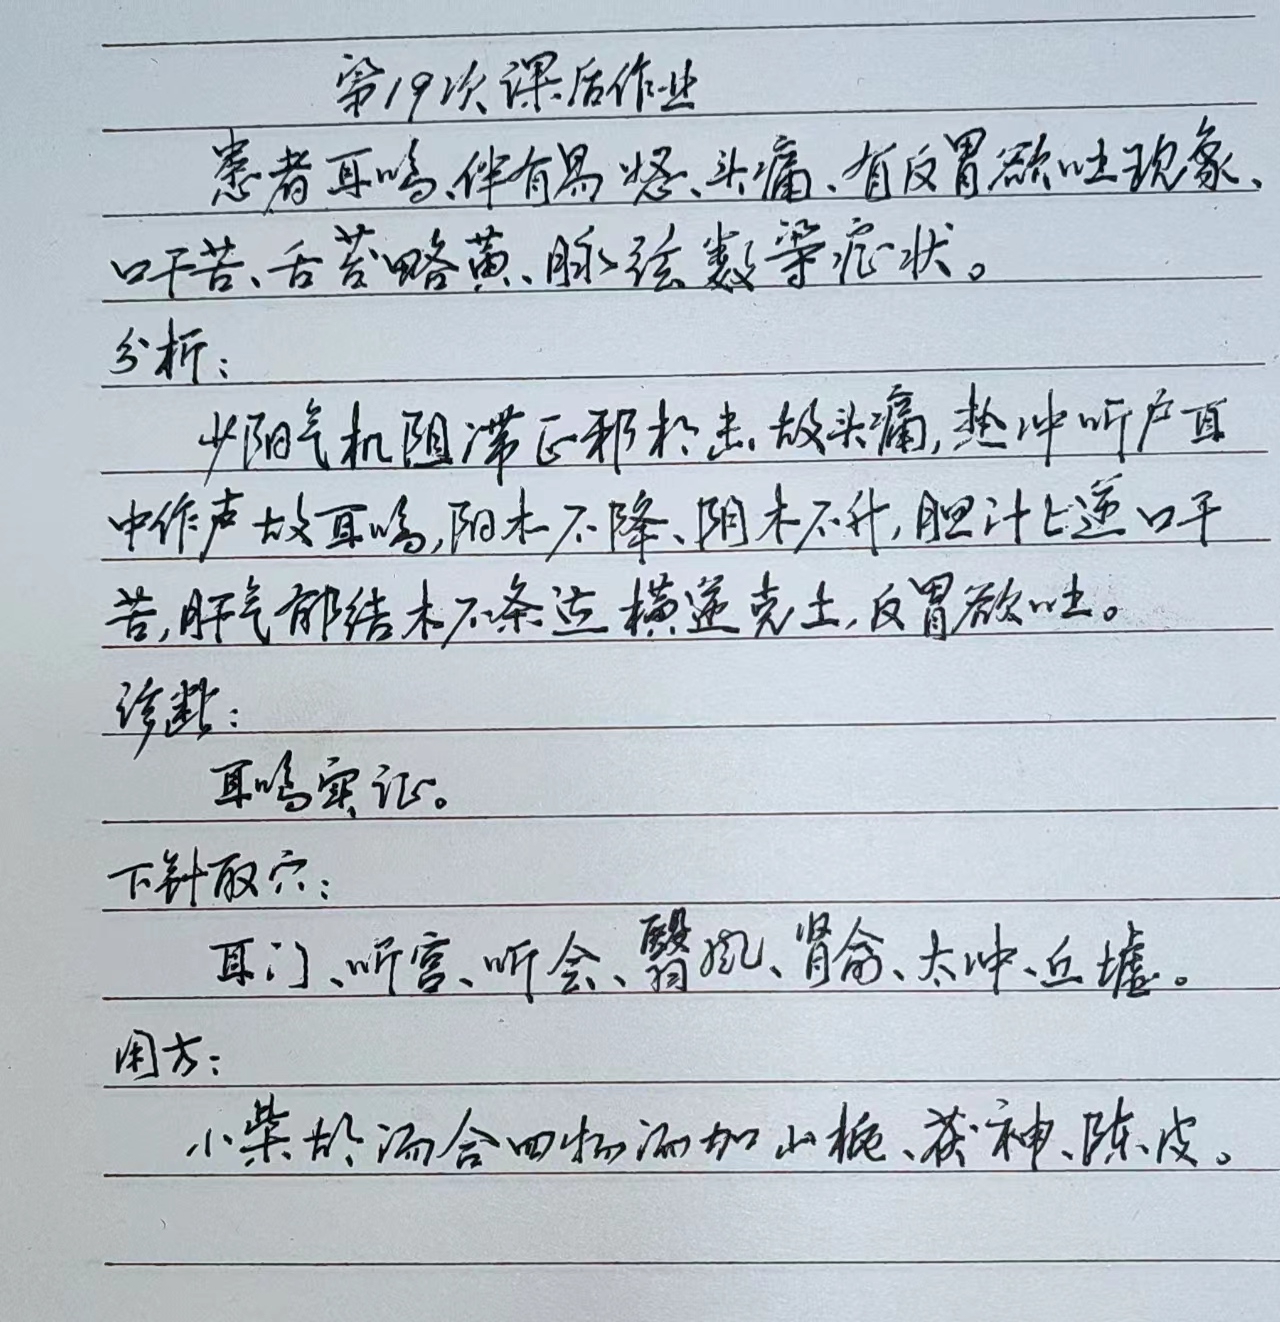 第19次课后作业
患者耳鸣、伴有易怒、头痛、有反胃欲吐现象、
口干苦、舌苔略黄、脉弦数等症状。
分析：
少阳气机阻滞正邪相击故头痛，热冲听户耳
中作声故耳鸣，阳木不降、阴木不升，胆汁上逆口干
苦，肝气郁结木不条达横逆克土，反胃欲吐。
诊断：
耳鸣实证。
下针取穴：
耳门、听宫、听会、翳风、肾俞、太冲、丘墟。
用方：
小柴胡汤合四物汤加山栀、茯神、陈皮。